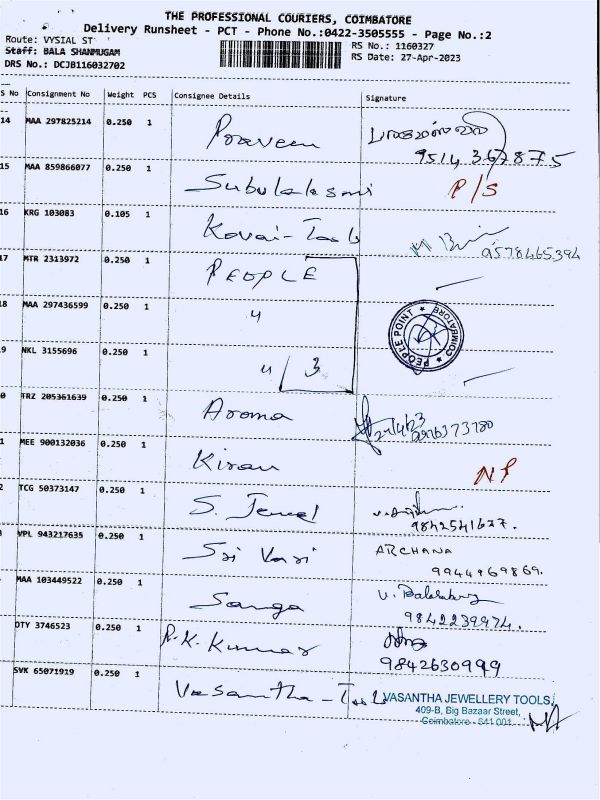 THE PROFESSIONAL COURIERS, COIMBATORE
Delivery Runsheet - PCT - Phone No.:0422-3505555 - Page No.:2
Route: VYSIAL ST
RS No.: 1160327
Staff: BALA SHANMUGAM
RS Date: 27-Apr-2023
DRS No.: DCJB116032702
S No Consignment No Weight PCS Consignee Details Signature
14 MAA 297825214 0.250 1 Praveen
9514367875
15 MAA 859866077 0.250 1 Subulaksmi P/S
16 KRG 103083 0.105 1 Kovai-Tools 9578465394
17 MTR 2313972 0.250 1 PEOPLE
18 MAA 297436599 0.250 1 "
PEOPLE POINT * COIMBATORE *
9 NKL 3155696 0.250 1 " 3
0 TRZ 205361639 0.250 1 Aroma 27/4/23
1 MEE 900132036 0.250 1 Kiran NP
2 TCG 50373147 0.250 1 S. Jewel
9842541627.
VPL 943217635 0.250 1 Sri Vari ARCHANA
9944969869.
MAA 103449522 0.250 1 Sanga
9842239974.
OTY 3746523 0.250 1 R.K. Kumar
9842630999
SVK 65071919 0.250 1 Vasantha-Tools VASANTHA JEWELLERY TOOLS
409-B, Big Bazaar Street,
Coimbatore - 641 001.